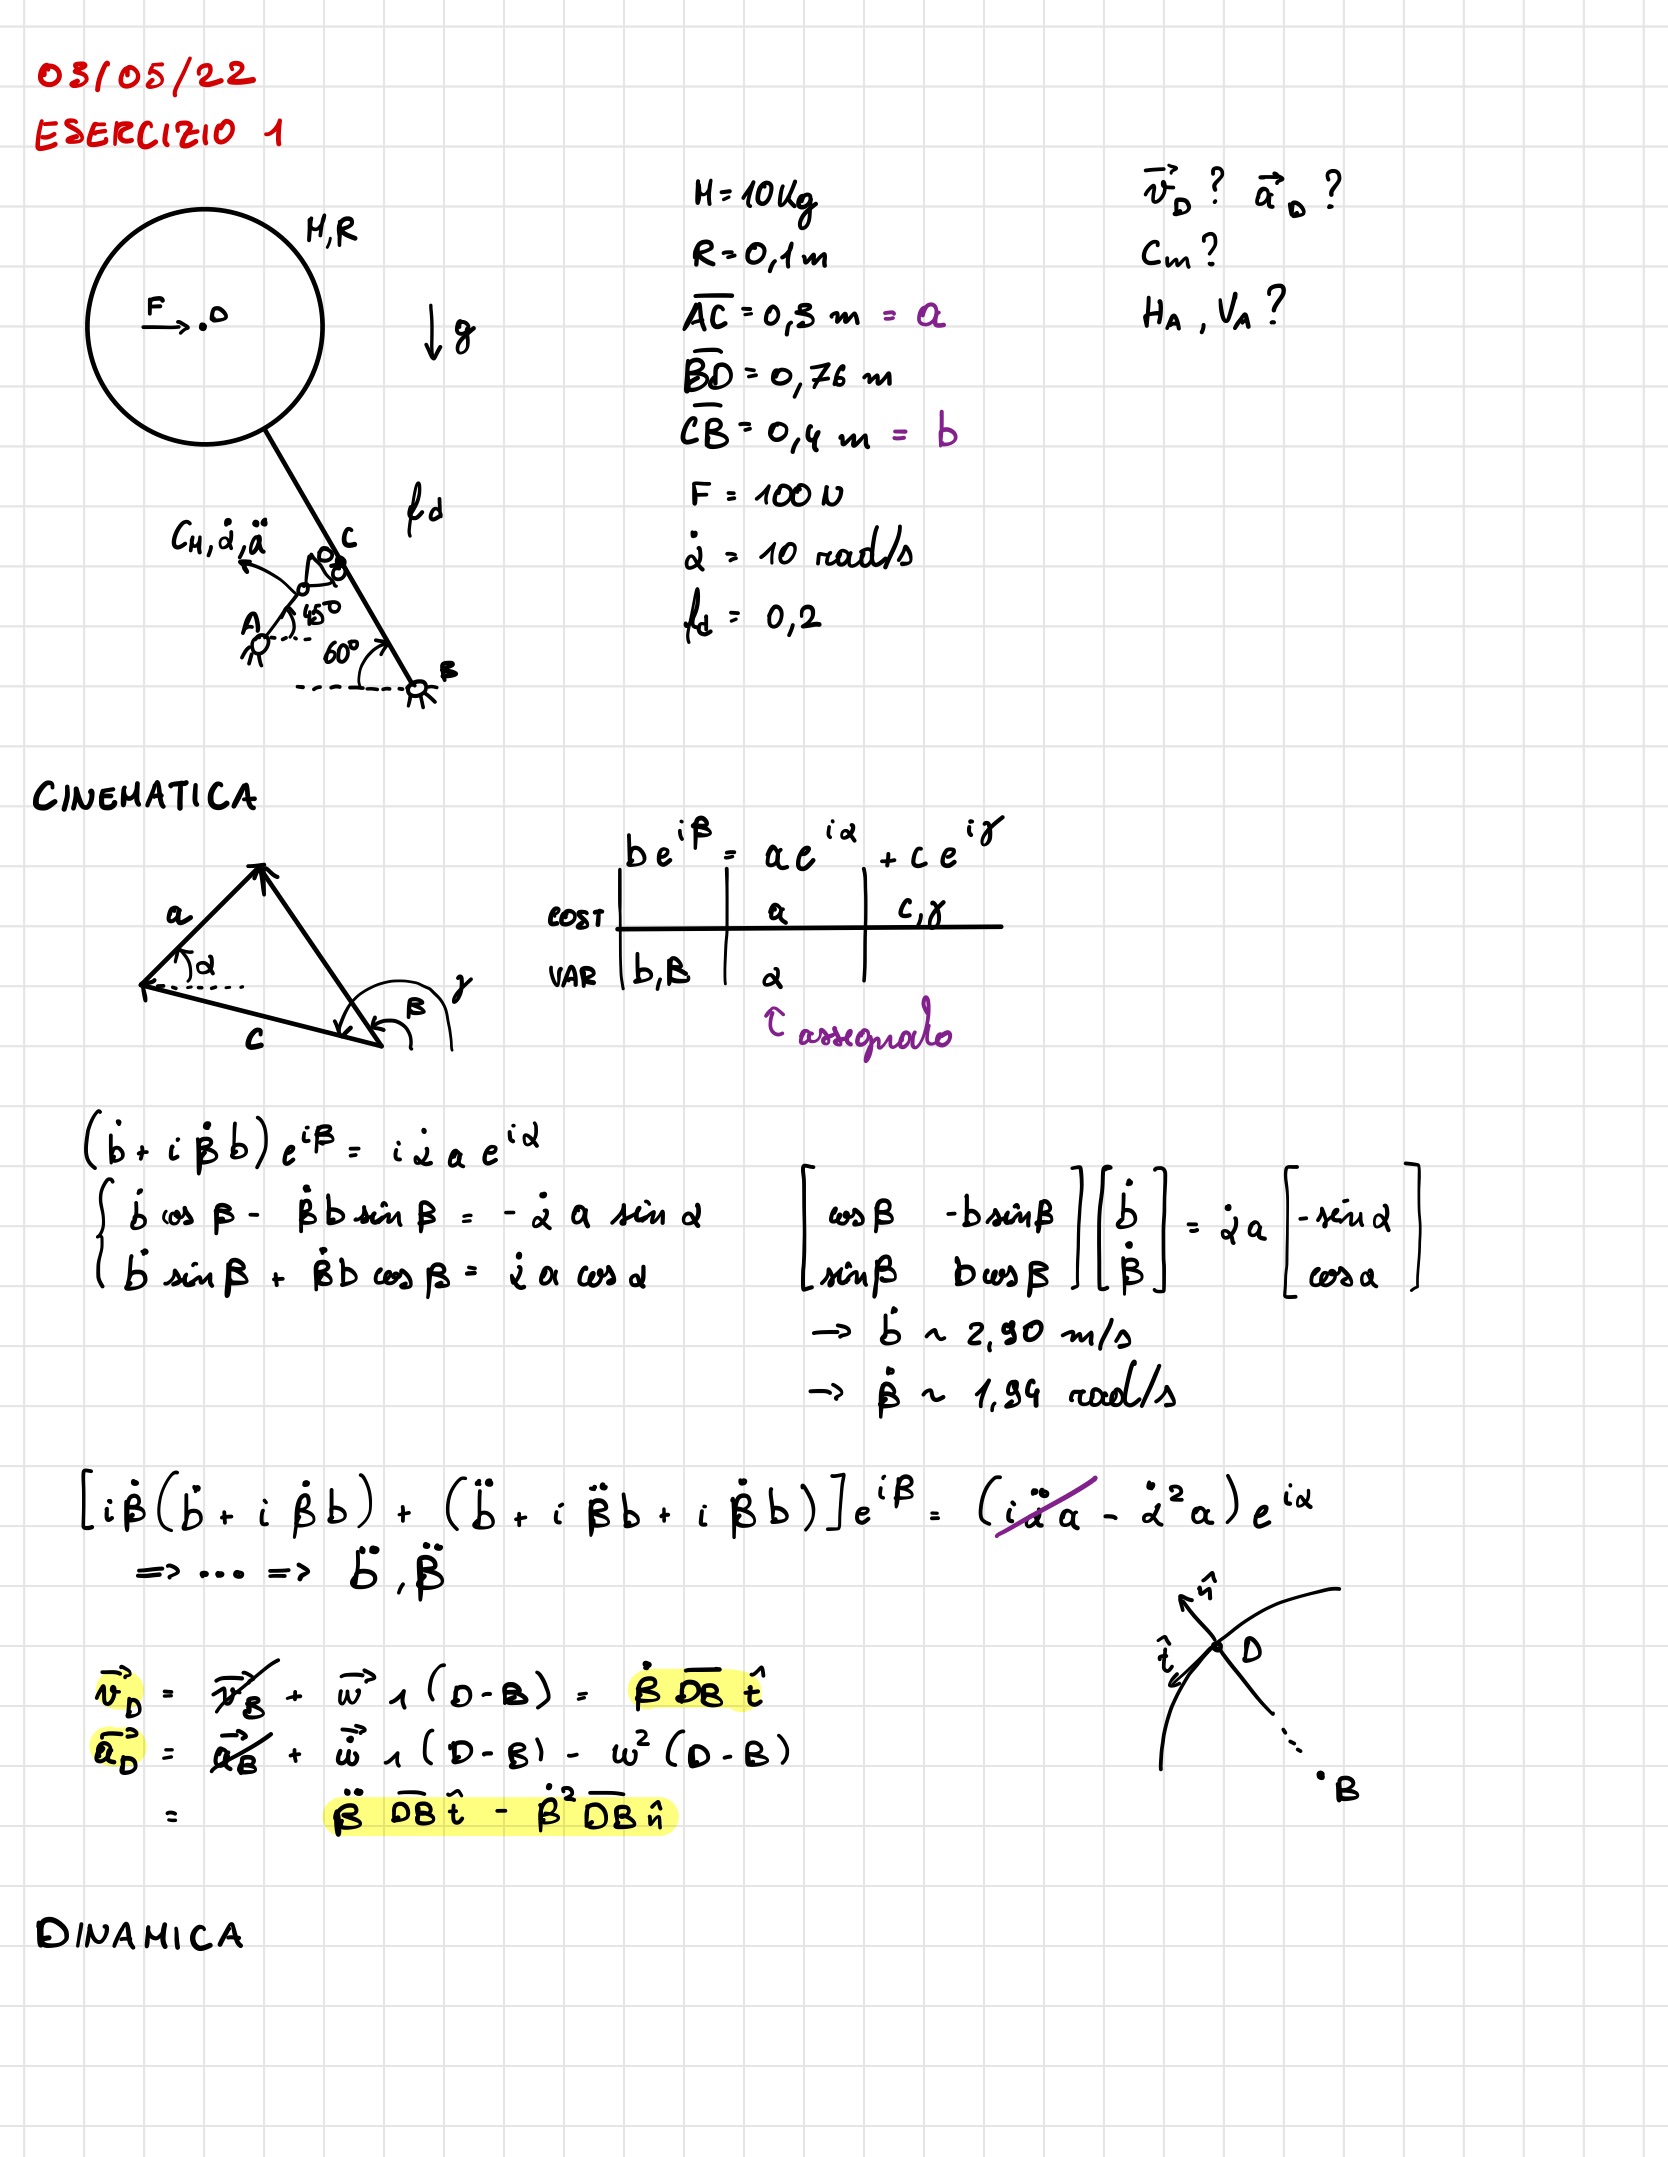 03/05/22
ESERCIZIO 1
M,R
F
D
g
C_M, α̇, α̈
f_d
C
A
45°
60°
B
M = 10 Kg
R = 0,1 m
A̅C̅ = 0,3 m = a
B̅D̅ = 0,76 m
C̅B̅ = 0,4 m = b
F = 100 N
α̇ = 10 rad/s
f_d = 0,2
v⃗_D ? a⃗_D ?
C_m ?
H_A , V_A ?
CINEMATICA
a
α
c
β
γ
b e^{iβ} = a e^{iα} + c e^{iγ}
COST a c,γ
VAR b,β α
↑ assegnato
(ḃ + i β̇ b) e^{iβ} = i α̇ a e^{iα}
{ ḃ cos β - β̇ b sin β = - α̇ a sin α
{ ḃ sin β + β̇ b cos β = α̇ a cos α
[ cos β -b sin β ] [ ḃ ] = α̇ a [ -sin α ]
[ sin β b cos β ] [ β̇ ] [ cos α ]
→ ḃ ~ 2,90 m/s
→ β̇ ~ 1,94 rad/s
[i β̇ (ḃ + i β̇ b) + (b̈ + i β̈ b + i β̇ ḃ)] e^{iβ} = (i α̈ a - α̇² a) e^{iα}
=> ... => b̈ , β̈
v⃗_D = v⃗_B + w⃗ ∧ (D-B) = β̇ D̅B̅ t̂
a⃗_D = a⃗_B + ẇ⃗ ∧ (D-B) - w² (D-B)
= β̈ D̅B̅ t̂ - β̇² D̅B̅ n̂
n̂
t̂
D
B
DINAMICA